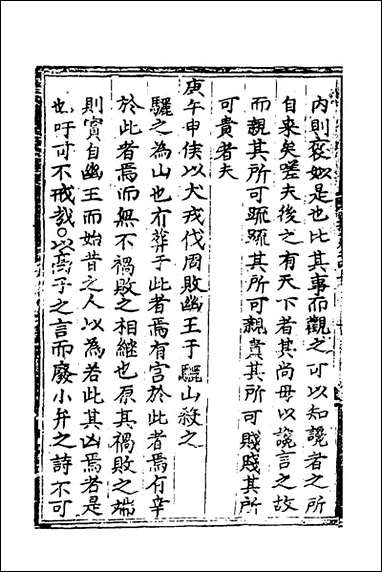 內則褒姒是也比其事而觀之可以知讒者之所
自来矣嗟夫後之有天下者其尚毋以讒言之故
而親其所可疏疏其所可親貴其所可賤賤其所
可貴者夫
庚午申侯以犬戎伐周敗幽王于驪山殺之
驪之為山也有葬于此者焉有宮於此者焉有幸
於此者焉而無不禍敗之相継也原其禍敗之端
則實自幽王而始昔之人以為若此其凶焉者是
也吁可不戒㦲○以高子之言而廢小弁之詩不可